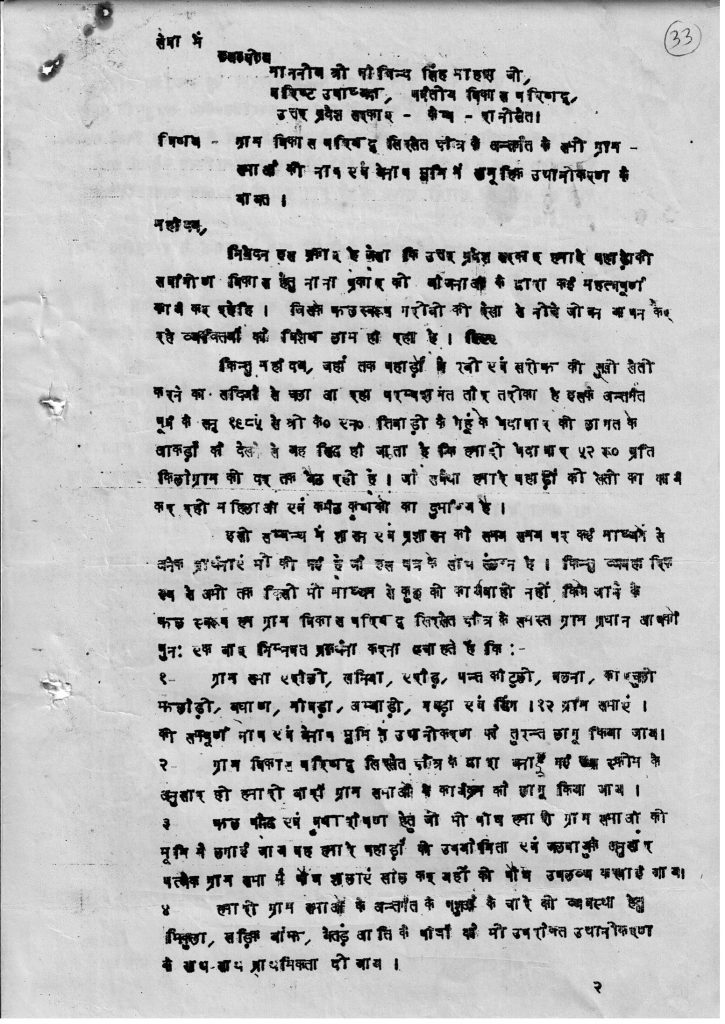 33
सेवा में
माननीय श्री गोविन्द सिंह माहरा जी,
वरिष्ट उपाध्यक्ष, पर्वतीय विकास परिषद्,
उत्तर प्रदेश सरकार - कैम्प - रानीखेत।
विषय - ग्राम विकास परिषद् सिलसेत क्षेत्र के अन्तर्गत के सभी ग्राम -
सभाओं की नाप एवं बेनाप भूमि में सामूहिक उद्यानीकरण के
बाबत ।
महोदय,
निवेदन इस प्रकार है जैसा कि उत्तर प्रदेश सरकार हमारे पहाड़ों की
सर्वांगीण विकास हेतु नाना प्रकार की योजनाओं के द्वारा कई महत्वपूर्ण
कार्य कर रही है। जिसके फलस्वरूप गरीबी की रेखा से नीचे जीवन यापन कर
रहे व्यक्तियों को विशेष लाभ हो रहा है ।
किन्तु महोदय, जहां तक पहाड़ों में रबी एवं खरीफ की सूखी खेती
करने का सदियों से चला आ रहा परम्परागत तौर तरीका है इसके अन्तर्गत
पूर्व के सन् १९८५ से श्री के० एन० तिवाड़ी के गेहूं के पैदावार की लागत के
आकड़ों को देखने से यह सिद्ध हो जाता है कि हमारी पैदावार ५२ रू० प्रति
किलोग्राम की दर तक बैठ रही है । जो सर्वथा हमारे पहाड़ों की खेती का कार्य
कर रही महिलाओं एवं कर्मठ कृषकों का दुर्भाग्य है ।
इसी सम्बन्ध में शासन एवं प्रशासन को समय समय पर कई माध्यमों से
अनेक प्रार्थनाएं भी की गई हैं जो इस पत्र के साथ संलग्न है । किन्तु व्यवहारिक
रूप से अभी तक किसी भी माध्यम से कुछ की कार्यवाही नहीं किये जाने के
फल स्वरूप हम ग्राम विकास परिषद् सिलसेत क्षेत्र के समस्त ग्राम प्रधान आपकी
पुनः एक बार निम्नवत प्रार्थना करना चाहते हैं कि :-
१- ग्राम सभा
१२ ग्राम सभाएं ।
की सम्पूर्ण नाप एवं बेनाप भूमि में उद्यानीकरण को तुरन्त लागू किया जाय।
२ - ग्राम विकास परिषद् सिलसेत क्षेत्र के द्वारा बनाई गई स्कीम के
अनुसार ही हमारी बारों ग्राम सभाओं में कार्यक्रम को लागू किया जाय ।
३ फल पौध एवं वृक्षारोपण हेतु जो भी पौध हमारी ग्राम सभाओं की
भूमि में लगाई जाय वह हमारे पहाड़ों की उपयोगिता एवं जलवायु के अनुसार
प्रत्येक ग्राम सभा में पौध शालाएं खोल कर यहीं की पौध उपलब्ध कराई जाय।
४ हमारी ग्राम सभाओं के अन्तर्गत के पशुओं के चारे की व्यवस्था हेतु
भिमुला, खड़िक बांज, आदि के पौधों को भी उपरोक्त उद्यानीकरण
के साथ-साथ प्राथमिकता दी जाय ।
२